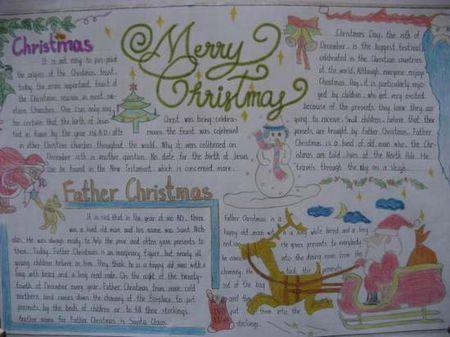 Christmas
It is not easy to pin-point
the origins of the Christmas feast,
today the most important feast of
the Christmas season in most wes-
tern Churches. One can only say
for certain that the birth of Jesus
Christ was being celebra-
means the feast was celebrated
in other Christian churches throughout the world. Why it was celebrated on
December 25th is another question. No date for the birth of Jesus
can be found in the New Testament, which is concerned more
Merry
Christmas
Christmas Day, the 25th of
December, is the biggest festival
celebrated in the Christian countries
of the world. Although everyone enjoys
Christmas Day, it is particularly enjo-
yed by children, who get very excited
because of the presents they know they are
going to receive. Small children believe that their
presents are brought by Father Christmas. Father
Christmas is a kind of old man who, the Chri-
stmas are told, lives at the North Pole. He
travels through the sky on a sleigh
Father Christmas
It is said that in the year of
was a kind old man and his name was Saint Nich-
olas. He was always ready to help the poor and often gave presents to
them. Today, Father Christmas is an imaginary figure, but nearly all
young children believe in him. They think he is a happy old man with a
long white beard and a long red robe. On the night of the twenty-
fourth of December every year, Father Christmas from some cold
northern land comes down the chimney of the fireplace to put
presents by the beds of children or to fill their stockings.
Another name for Father Christmas is Santa Claus.
Father Christmas is a
happy old man with a long white beard and a long
red He gives presents to everybody
into the dining room from the
chimney. He the presents
out of the bag
and
put them into the
stockings.